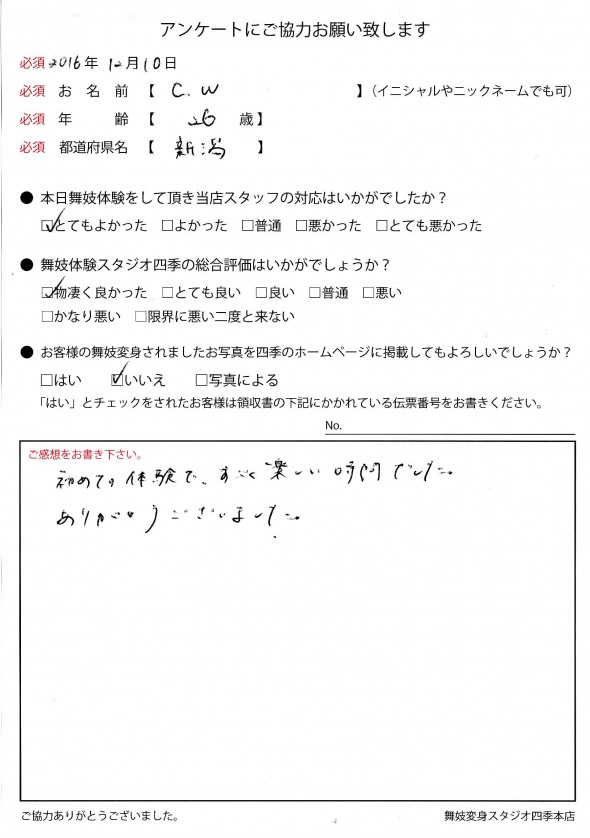 アンケートにご協力お願い致します
必須 2016年 12月10日
必須 お名前【 C.W 】(イニシャルやニックネームでも可)
必須 年齢【 26 歳】
必須 都道府県名【 新潟 】
● 本日舞妓体験をして頂き当店スタッフの対応はいかがでしたか？
☑とてもよかった □よかった □普通 □悪かった □とても悪かった
● 舞妓体験スタジオ四季の総合評価はいかがでしょうか？
☑物凄く良かった □とても良い □良い □普通 □悪い
□かなり悪い □限界に悪い二度と来ない
● お客様の舞妓変身されましたお写真を四季のホームページに掲載してもよろしいでしょうか？
□はい ☑いいえ □写真による
「はい」とチェックをされたお客様は領収書の下記にかかれている伝票番号をお書きください。
No.
ご感想をお書き下さい。
初めての体験で、すごく楽しい時間でした。
ありがとうございました。
ご協力ありがとうございました。 舞妓変身スタジオ四季本店